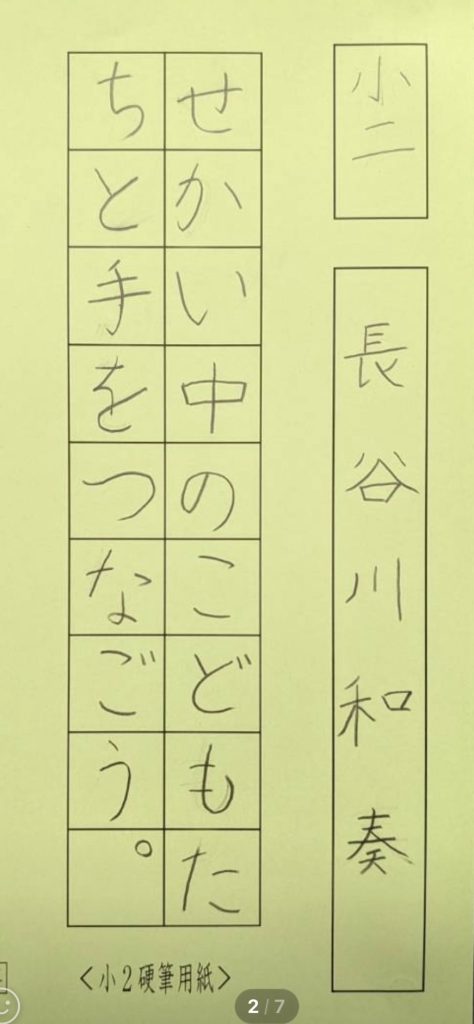 小二
長谷川和奏
せかい中のこどもた
ちと手をつなごう。
<小2硬筆用紙>
2/7